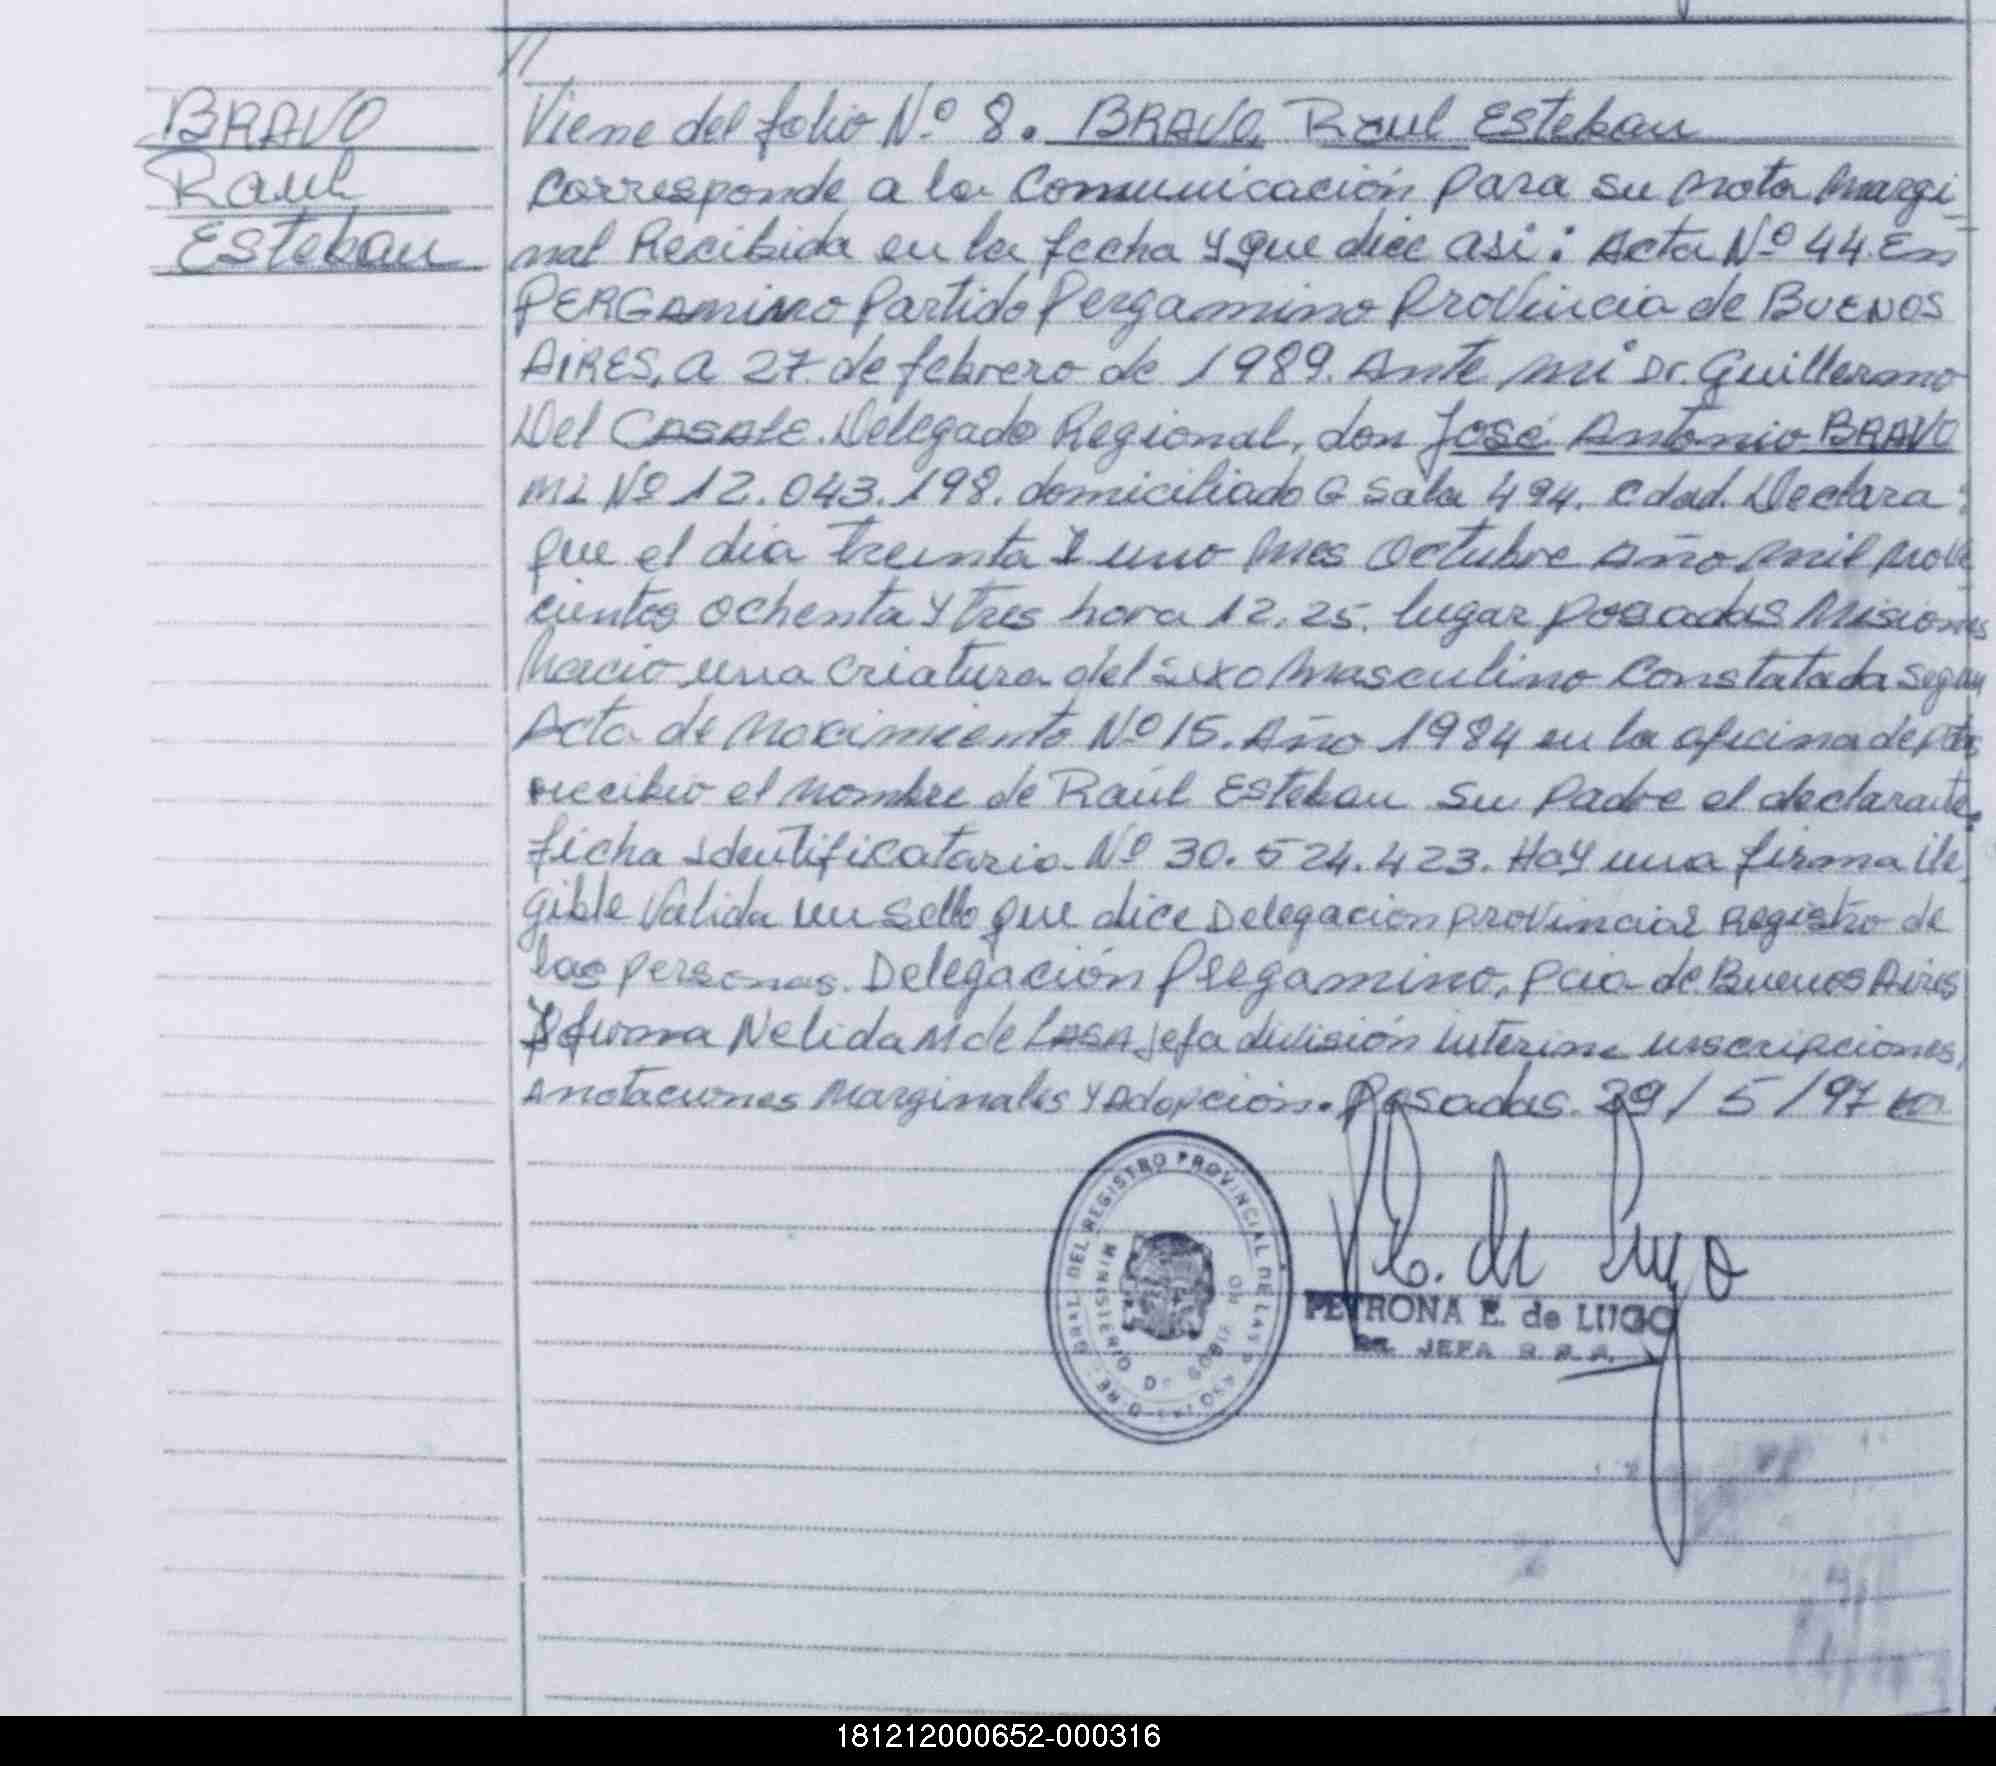 //
BRAVO
Raul
Esteban
Viene del folio Nº 8. BRAVO, Raul Esteban
Corresponde a la Comunicación para su nota margi-
nal Recibida en la fecha y que dice asi: Acta Nº 44. En
PERGAMINO Partido Pergamino Provincia de BUENOS
AIRES, a 27 de febrero de 1989. Ante mi Dr. Guillermo
Del CASALE. Delegado Regional, don José Antonio BRAVO
MI Nº 12.043.198. domiciliado G Sala 494. cdad. Declara:
que el dia treinta y uno mes Octubre Año mil nove
cientos ochenta y tres hora 12.25. lugar posadas Misiones
Nacio una criatura del sexo masculino Constatada segun
Acta de nacimiento Nº 15. Año 1984 en la oficina de
recibio el nombre de Raúl Esteban su Padre el declarante.
ficha identificatoria Nº 30.524.423. Hay una firma ile
gible Valida un sello que dice Delegacion provincial Registro de
las personas. Delegación Pregamino, Pcia de Buenos Aires
y firma Nelida M de LASA jefa división interina inscripciones,
Anotaciones Marginales y Adopción. Posadas 29/5/97
DIRE. GRAL. DEL REGISTRO PROVINCIAL DE LAS
MINISTERIO DE GOBIERNO
PETRONA E. de LUGO
JEFA
181212000652-000316